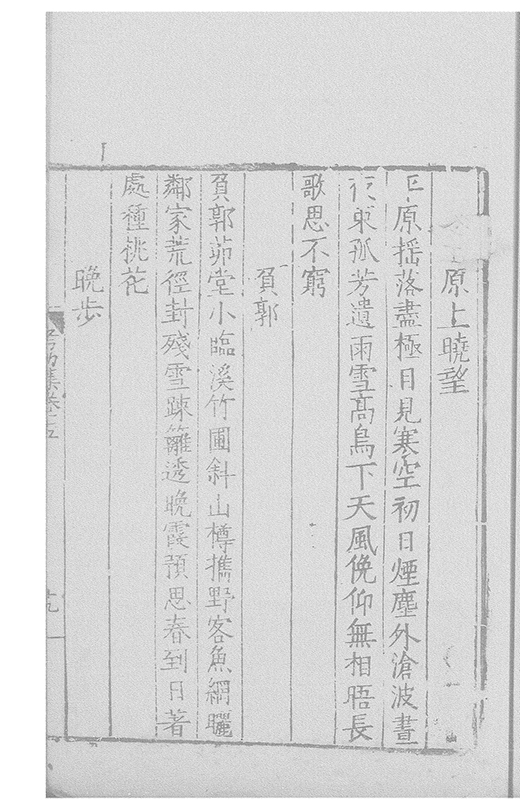 原上曉望
平原揺落盡極目見寒空初日煙塵外滄波晝
夜東孤芳遺雨雪高鳥下天風俛仰無相晤長
歌思不窮
負郭
負郭茆堂小臨溪竹圃斜山樽携野客魚網曬
鄰家荒徑封殘雪踈籬透晚霞預思春到日著
處種桃花
晚步
集卷之五
十九